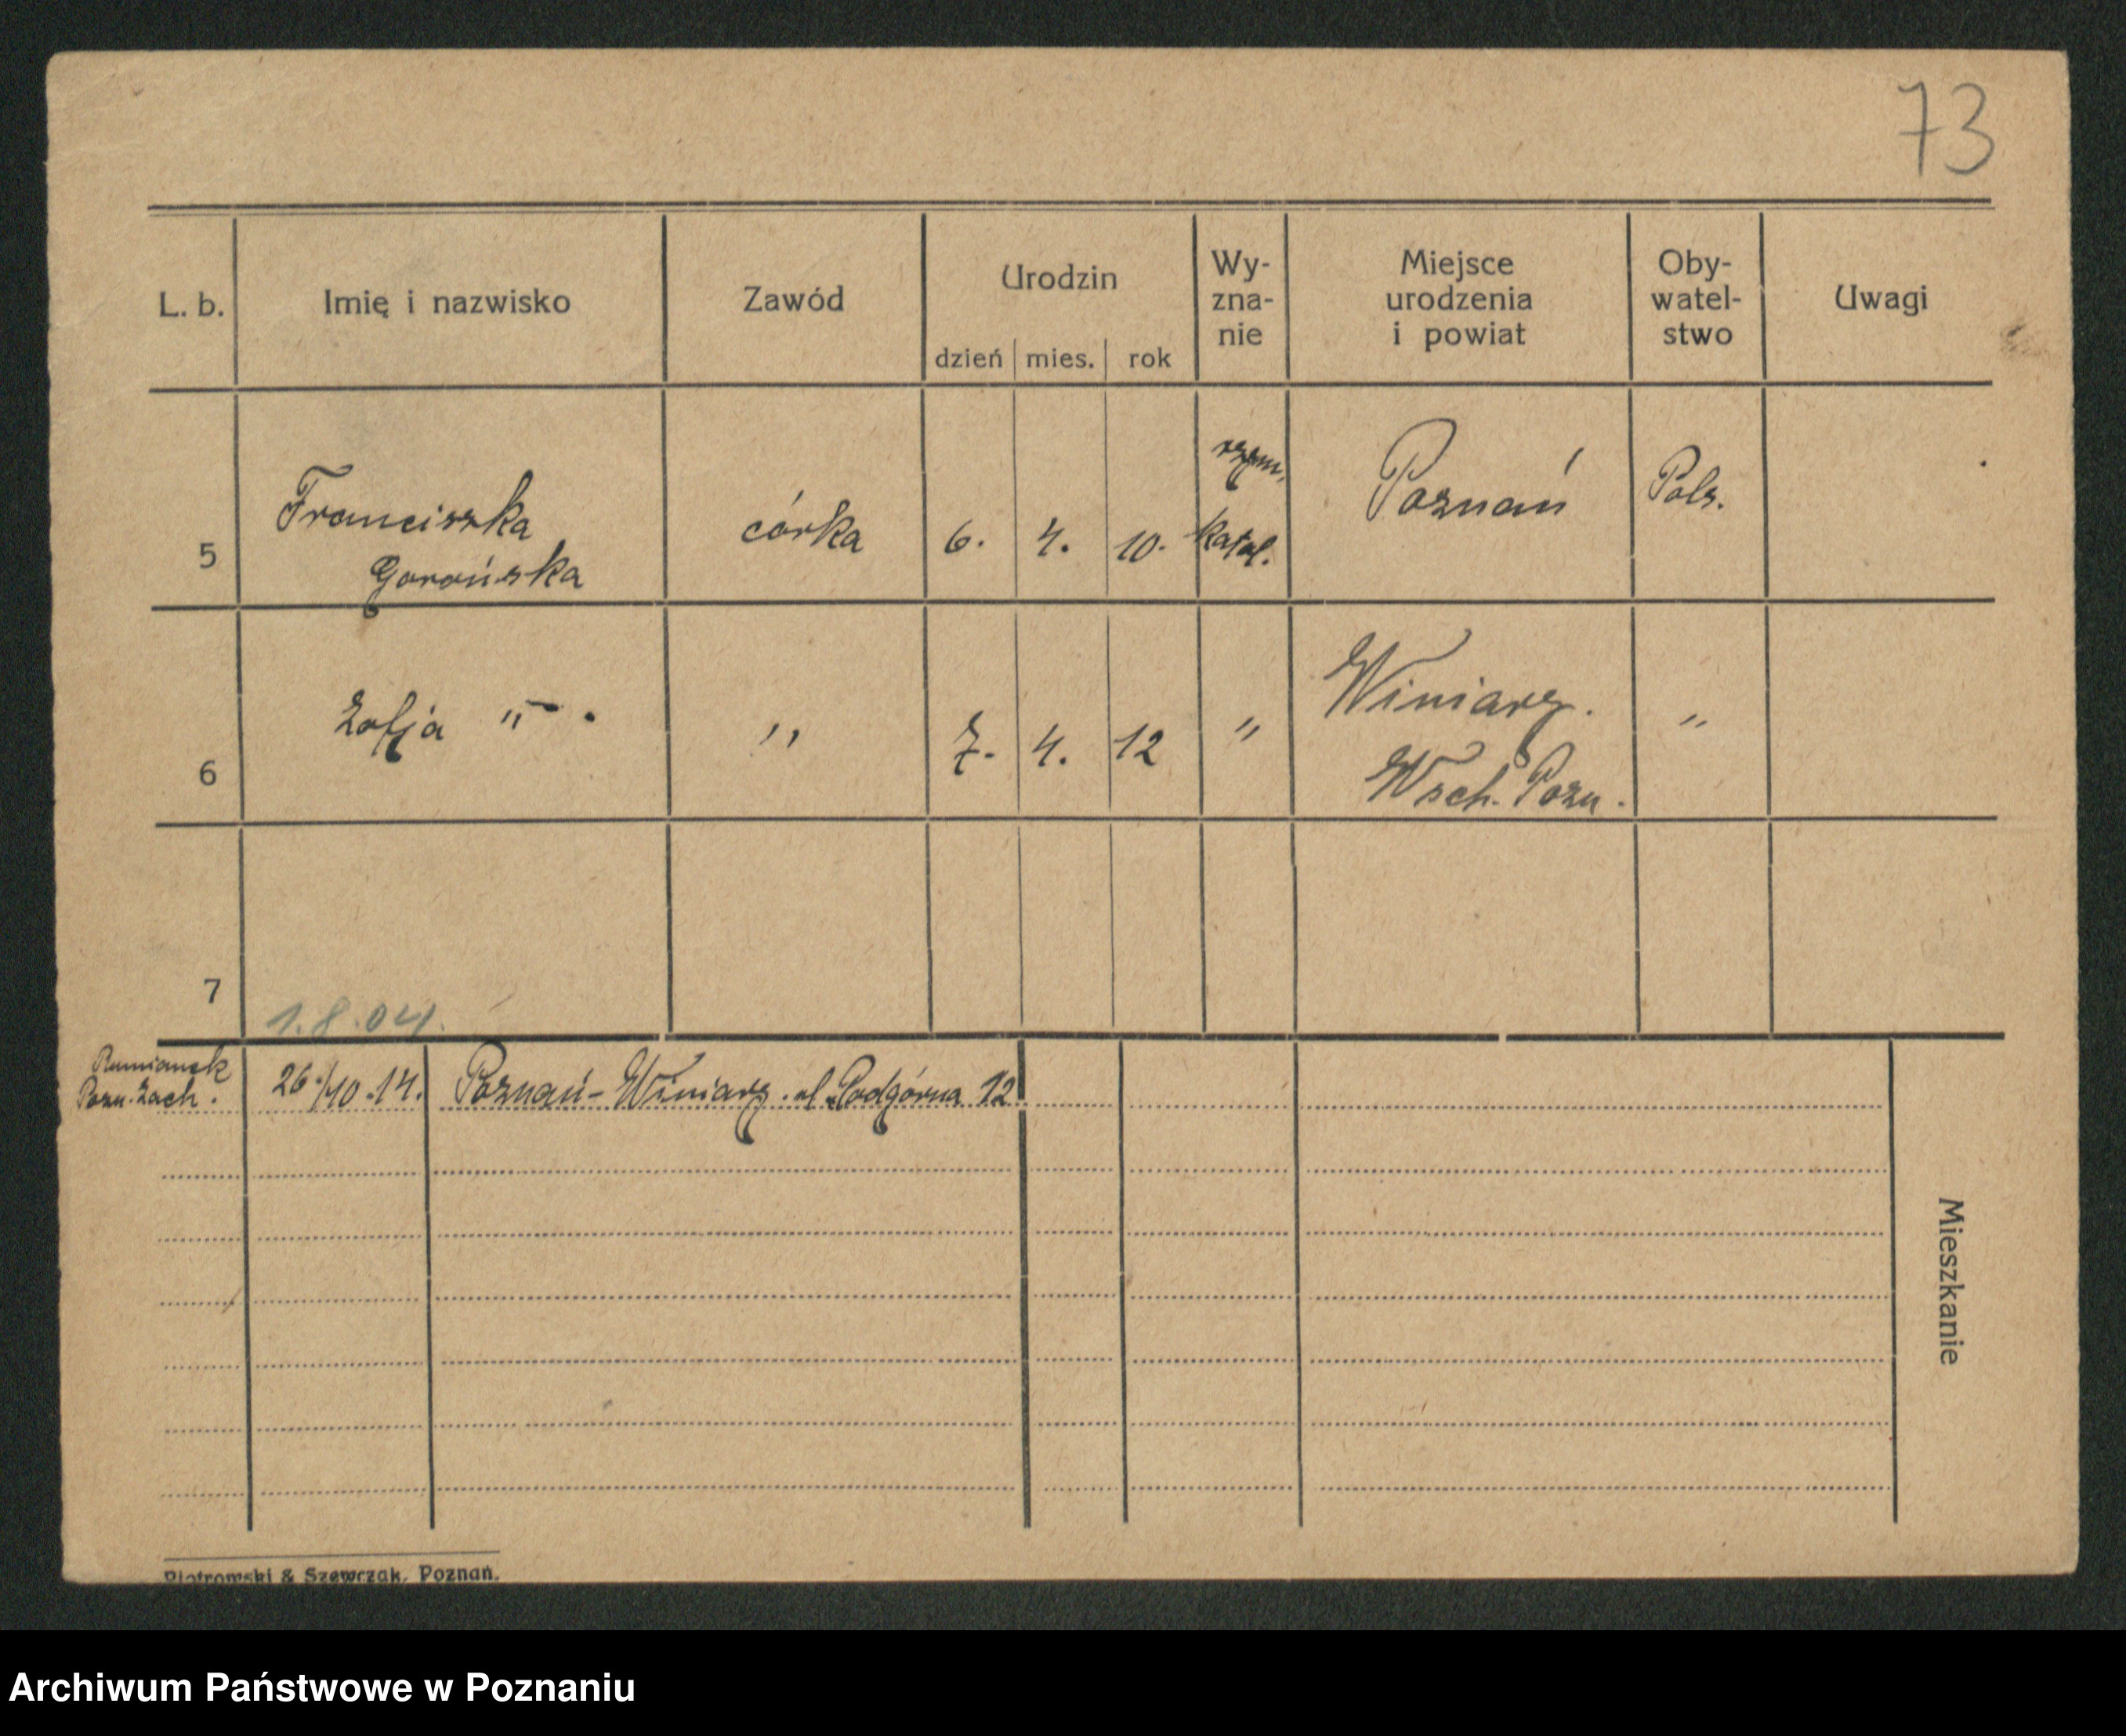 73
L. b.
Imię i nazwisko
Zawód
Urodzin
dzień mies. rok
Wy-
zna-
nie
Miejsce
urodzenia
i powiat
Oby-
watel-
stwo
Uwagi
5 Franciszka
Gorońska
córka 6. 4. 10.
rzym.
katol.
Poznań
Pols.
6 Zofja " - .
" 7. 4. 12 "
Winiary.
Wsch. Pozn.
"
7
1.8.04.
Rumianek
Pozn. Zach.
26./10.14. Poznań-Winiary. ul. Podgórna 12
Mieszkanie
Piotrowski & Szewczak, Poznań.
Archiwum Państwowe w Poznaniu